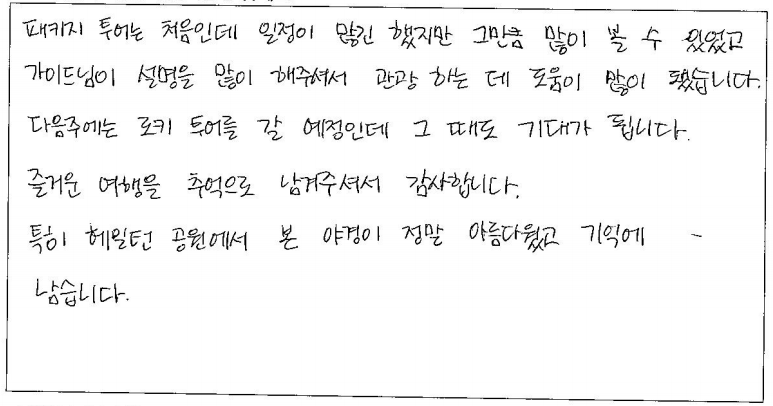 패키지 투어는 처음인데 일정이 많긴 했지만 그만큼 많이 볼 수 있었고
가이드님이 설명을 많이 해주셔서 관광 하는 데 도움이 많이 됐습니다.
다음주에는 로키 투어를 갈 예정인데 그 때도 기대가 됩니다.
즐거운 여행을 추억으로 남겨주셔서 감사합니다.
특히 헤밀턴 공원에서 본 야경이 정말 아름다웠고 기억에 -
남습니다.